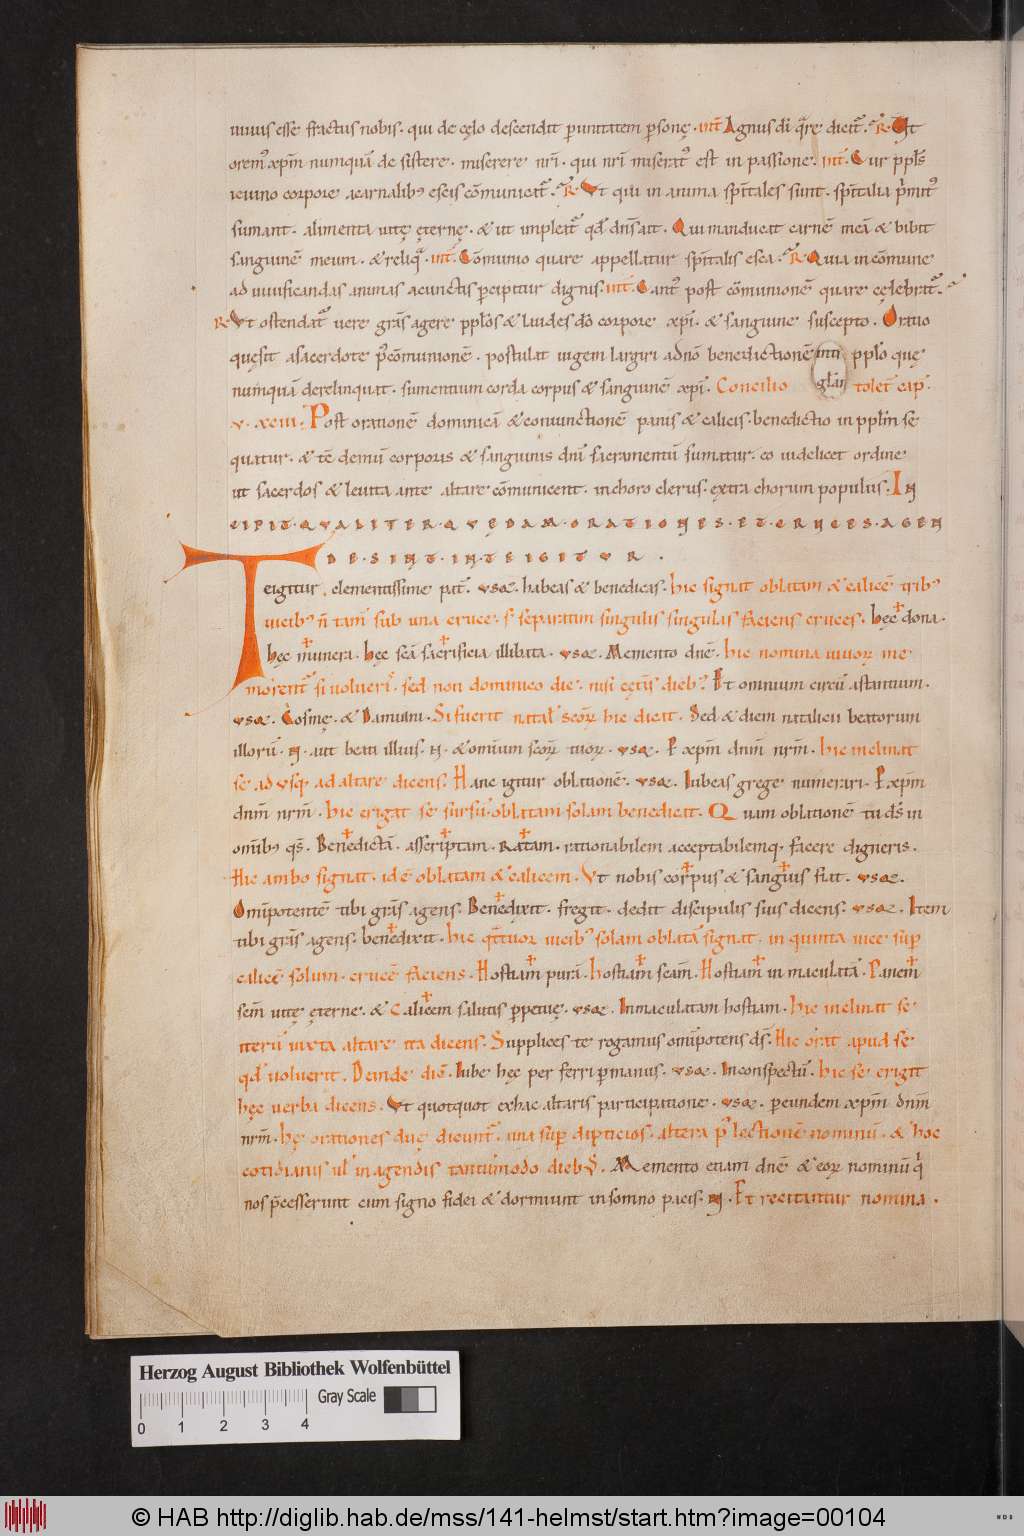 unus esse fractus nobis. qui de cęlo descendit p unitatem psonę. int̄ Agnus dī q̄rę dicit᷑. R̄ Ut
orem᷒ xp̄m numquā desistere. miserere nr̄i. qui nr̄i miserat᷒ est in passione. int̄. Cur ppl̄s
ieiuno corpore a carnalib᷒ escis cōmunicat᷑. R̄ Ut qui in anima sp̄itales sunt. sp̄italia p̄mit᷒
sumant. alimenta uitę ęternę. & ut impleat᷑ qd̄ dn̄s ait. Qui manducat carnē meā & bibit
sanguinē meum. & reliq̄. int̄. Cōmunio quare appellatur sp̄italis esca. R̄ Quia in cōmune
ad uiuificandas animas a cunctis percipitur dignis. int̄. Cant᷒ post cōmunionē quare cęlebrat᷑.
R̄ Ut ostendat᷑ uere grās agere ppl̄os & laudes dō corpore xp̄i. & sanguine suscepto. Oratio
quęsit a sacerdote p᷒ cōmunionē. postulat uigem largiri ad nō benedictionē ppl̄o quę
numquā derelinquat. sumentium corda corpus & sanguinē xp̄i. Concilio tolet̄ cap̄.
v. xviii. Post orationē dominicā & coniunctionē panis & calicis. benedictio in ppl̄m se
quatur. & tē demū corporis & sanguinis dn̄i sacramentū sumatur. eo uidelicet ordine
ut sacerdos & leuita ante altare cōmunicent. in choro clerus. extra chorum populus. IN
CIPIT. QVALITER. QVEDAM. ORATIONES. ET. CRVCES. AGEN
DE. SINT. IN. TE IGITVR.
Te igitur. clementissime pat̄. vsq. habeas & benedicas. hic signat oblatam & calicē trib᷒
uicib᷒ n̄ tam̄ sub una cruce. s; separatim singulis singulas faciens cruces. hęc dona.
hęc munera. hęc scā sacrificia illibata. vsq. Memento dnē. hic nomina uiuor me
morent᷑ si uoluerī. sed non dominico die. nisi cętis dieb᷒. Et omnium circū astantium.
vsq. Cosmę. & Damiani. Si fuerit natal̄ scor̄ hic dicit. Sed & diem natalicii beatorum
illorū. N. aut beati illius. N. & omnium scor̄ tuor̄. vsq. P xp̄m dnm̄ nrm̄. hic inclinat
se ad vsq ad altare dicens. Hanc igitur oblationē. vsq. Iubeas grege numerari. P xp̄m
dnm̄ nrm̄. hic erigat se sursū. oblatam solam benedicat. Quam oblationē tu ds̄ in
omīb᷒ qs̄. Benedictā. asscriptam. Ratam. rationabilem acceptabilemq; facere digneris.
Hic ambo signat. id ē oblatam & calicem. Ut nobis corpus & sanguis fiat. vsq.
Omīpotentē tibi grās agens. Benedixit. fregit. dedit discipulis suis dicens. vsq. Item
tibi grās agens. benedixit. hic q̄ttuor uicib᷒ solam oblatā signat. in quinta uice sup
calicē solum. crucē faciens. Hostiam purā. hostiam scam̄. Hostiam inmaculatā. Panem
scm̄ uitę ęterne. & Calicem salutis ppetuę. vsq. Inmaculatam hostiam. hic inclinat se
iterū iuxta altare ita dicens. Supplices te rogamus omīpotens ds̄. Hic orat apud se
qd̄ uoluerit. Deinde dic̄. Iube hęc per ferri p manus. vsq. In conspectū. hic se erigit
hęc uerba dicens. Ut quotquot ex hac altaris participatione. vsq. p eundem xp̄m dnm̄
nrm̄. hę orationes duę dicunt᷑. una sup dipticios. altera p᷒ lectionē nominū. & hoc
cotidianis ul̄ in agendis tantūmodo dieb᷒. Memento etiam dnē & eor nominū q̄
nos p̄cesserunt cum signo fidei & dormiunt in somno pacis. N. Et recitantur nomina.
Herzog August Bibliothek Wolfenbüttel
Gray Scale
0 1 2 3 4
© HAB http://diglib.hab.de/mss/141-helmst/start.htm?image=00104